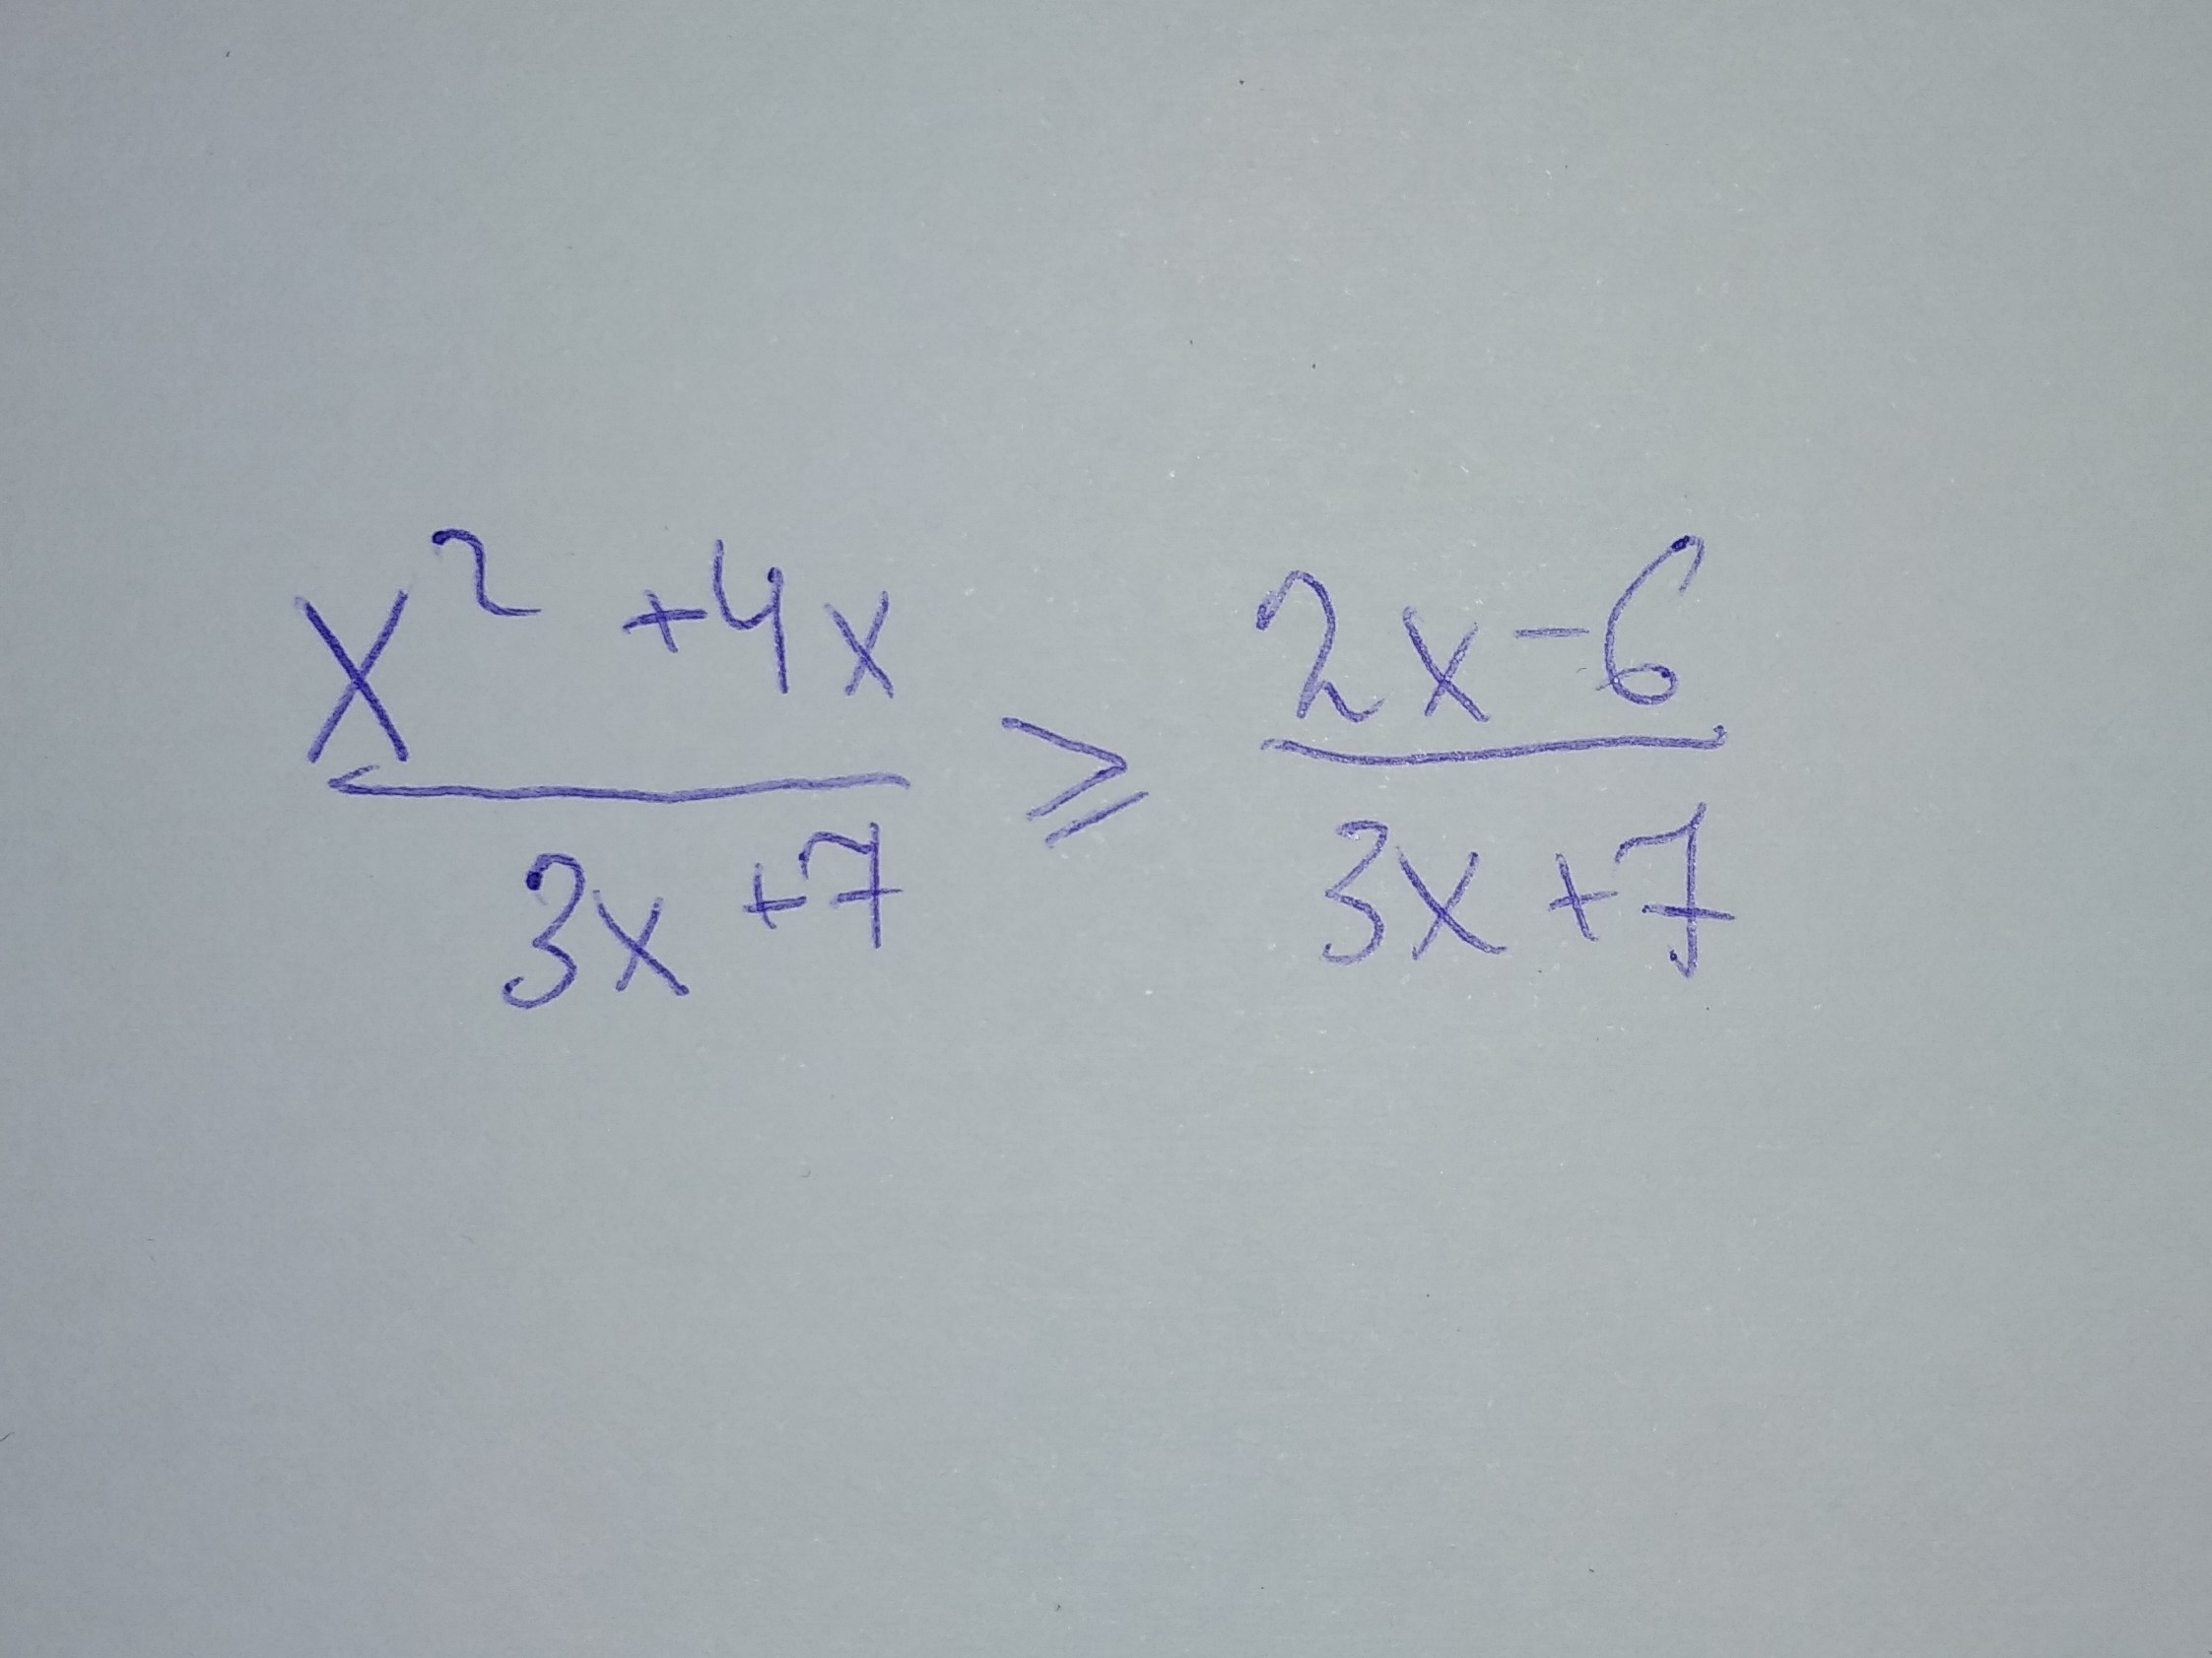 x² + 4x / 3x + 7 ⩾ 2x - 6 / 3x + 7